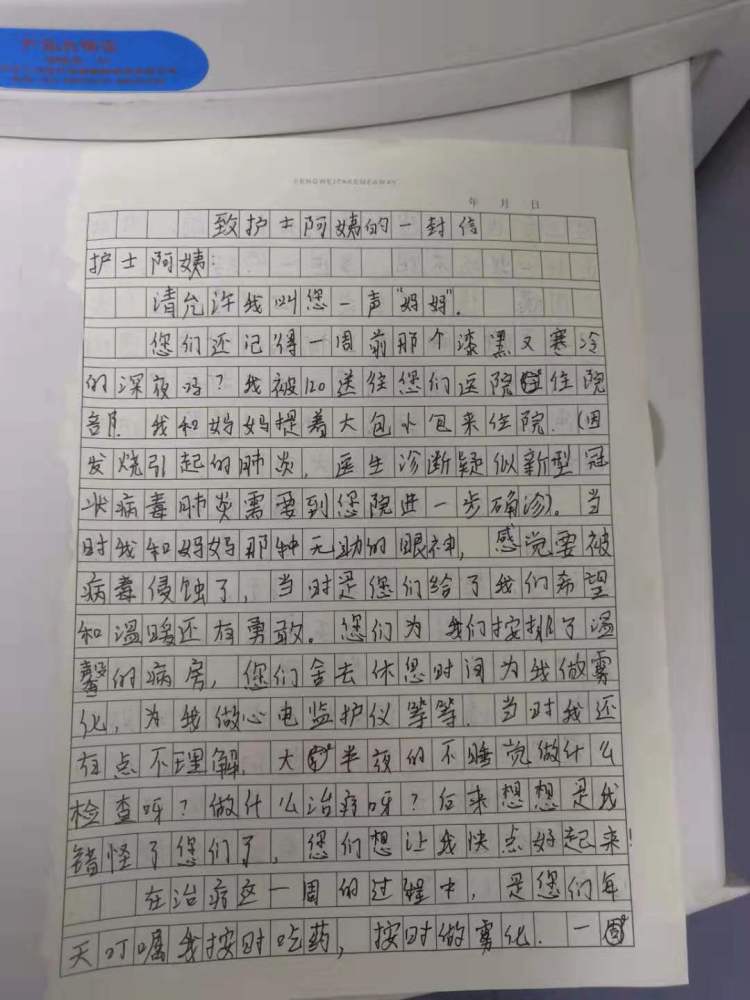 年 月 日
致护士阿姨的一封信
护士阿姨:
请允许我叫您一声"妈妈".
您们还记得一周前那个漆黑又寒冷
的深夜吗?我被120送往您们医院住院
部.我和妈妈提着大包小包来住院.(因
发烧引起的肺炎,医生诊断疑似新型冠
状病毒肺炎需要到您院进一步确诊)。当
时我和妈妈那种无助的眼神,感觉要被
病毒侵蚀了,当时是您们给了我们希望
和温暖还有勇敢。您们为我们按排了温
馨的病房,您们舍去休息时间为我做雾
化,为我做心电监护仪等等.当时我还
有点不理解.大半夜的不睡觉做什么
检查呀?做什么治疗呀?后来想想是我
错怪了您们了,您们想让我快点好起来!
在治疗这一周的过程中,是您们每
天叮嘱我按时吃药,按时做雾化.一